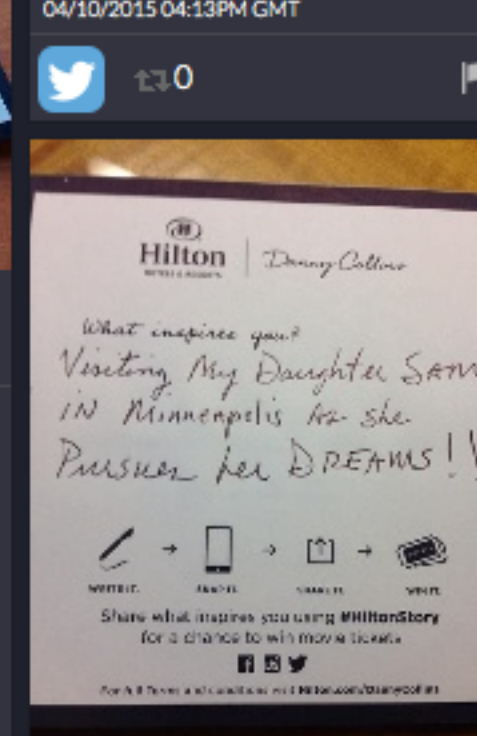 04/10/2015 04:13PM GMT
0
Hilton
HOTELS & RESORTS
Danny Collins
What inspires you?
Visiting My Daughter
IN Minneapolis As she
Pursues her DREAMS!!
WRITE IT. SNAP IT. SHARE IT. WIN IT.
Share what inspires you using #HiltonStory
for a chance to win movie tickets
For full Terms and Conditions visit Hilton.com/DannyCollins